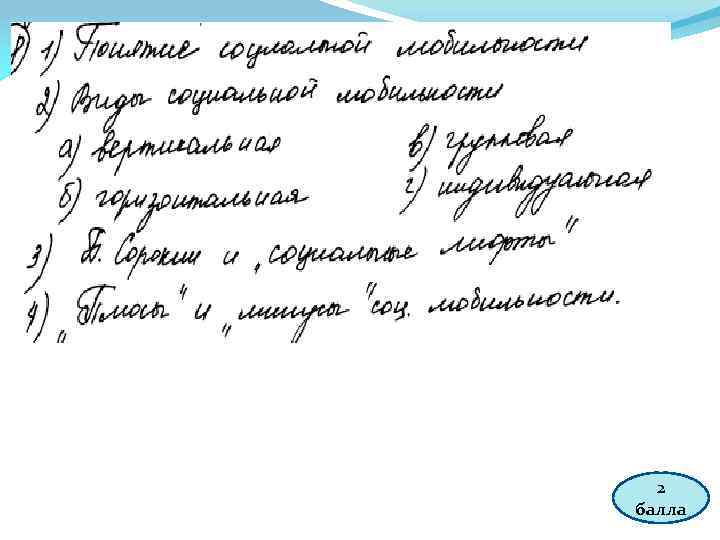 8) 1) Понятие социальной мобильности
2) Виды социальной мобильности
а) вертикальная в) групповая
б) горизонтальная г) индивидуальная
3) П. Сорокин и „социальные лифты"
4) „Плюсы" и „минусы" соц. мобильности.
2
балла